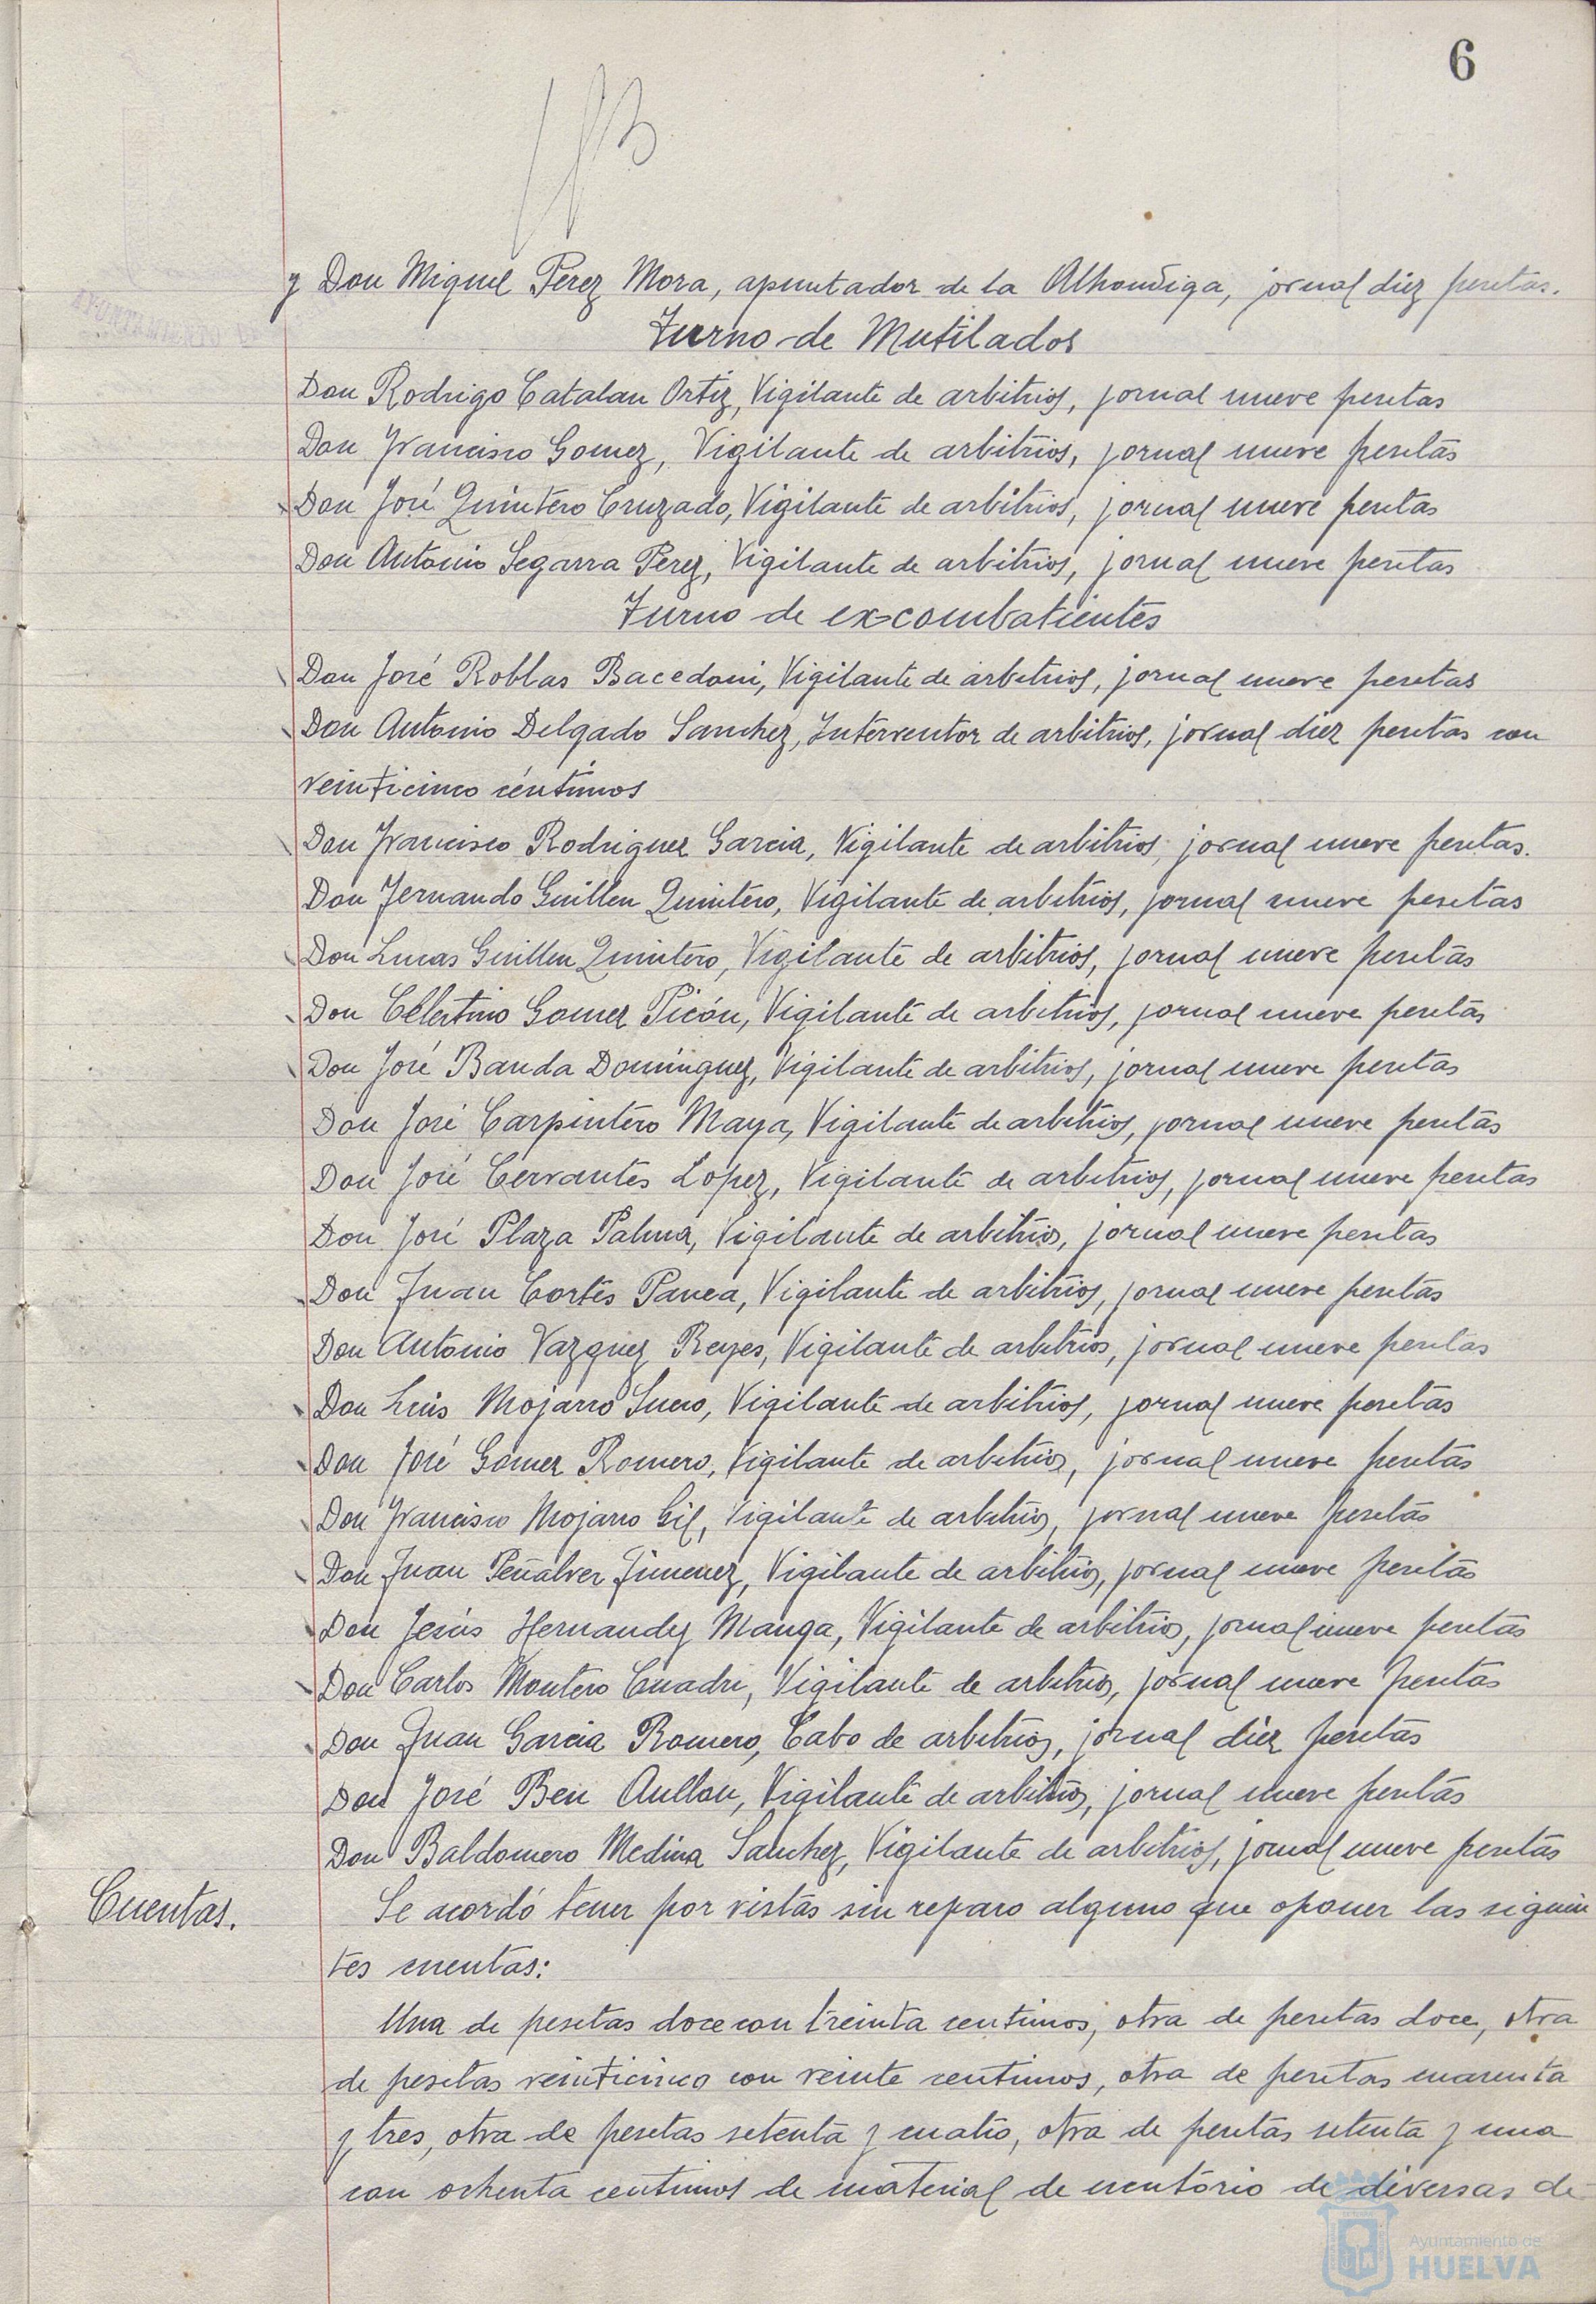 6
y Don Miguel Perez Mora, apuntador de la Alhondiga, jornal diez pesetas.
Turno de Mutilados
Don Rodrigo Catalan Ortiz, Vigilante de arbitrios, jornal nueve pesetas
Don Francisco Gomez, Vigilante de arbitrios, jornal nueve pesetas
Don José Quintero Cruzado, Vigilante de arbitrios, jornal nueve pesetas
Don Antonio Segarra Perez, Vigilante de arbitrios, jornal nueve pesetas
Turno de ex-combatientes
Don José Roblas Bacedoni, Vigilante de arbitrios, jornal nueve pesetas
Don Antonio Delgado Sanchez, Interventor de arbitrios, jornal diez pesetas con
veinticinco céntimos
Don Francisco Rodriguez Garcia, Vigilante de arbitrios, jornal nueve pesetas.
Don Fernando Guillen Quintero, Vigilante de arbitrios, jornal nueve pesetas
Don Lucas Guillen Quintero, Vigilante de arbitrios, jornal nueve pesetas
Don Celestino Gomez Picón, Vigilante de arbitrios, jornal nueve pesetas
Don José Banda Domínguez, Vigilante de arbitrios, jornal nueve pesetas
Don José Carpintero Maya, Vigilante de arbitrios, jornal nueve pesetas
Don José Cervantes Lopez, Vigilante de arbitrios, jornal nueve pesetas
Don José Plaza Palma, Vigilante de arbitrios, jornal nueve pesetas
Don Juan Cortés Panea, Vigilante de arbitrios, jornal nueve pesetas
Don Antonio Vazquez Reyes, Vigilante de arbitrios, jornal nueve pesetas
Don Luis Mojarro Suero, Vigilante de arbitrios, jornal nueve pesetas
Don José Gomez Romero, Vigilante de arbitrios, jornal nueve pesetas
Don Francisco Mojarro Gil, Vigilante de arbitrios, jornal nueve pesetas
Don Juan Peñalver Jimenez, Vigilante de arbitrios, jornal nueve pesetas
Don Jesús Hernandez Manga, Vigilante de arbitrios, jornal nueve pesetas
Don Carlos Montero Cuadri, Vigilante de arbitrios, jornal nueve pesetas
Don Juan Garcia Romero, Cabo de arbitrios, jornal diez pesetas
Don José Ben Aullon, Vigilante de arbitrios, jornal nueve pesetas
Don Baldomero Medina Sanchez, Vigilante de arbitrios, jornal nueve pesetas
Cuentas. Se acordó tener por vistas sin reparo alguno que oponer las siguien
tes cuentas:
Una de pesetas doce con treinta centimos, otra de pesetas doce, otra
de pesetas veinticinco con veinte centimos, otra de pesetas cuarenta
y tres, otra de pesetas setenta y cuatro, otra de pesetas setenta y una
con ochenta centimos de material de escritorio de diversas de
Ayuntamiento de
HUELVA